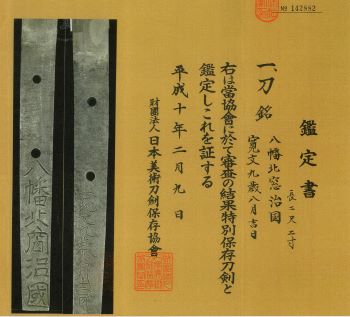 № 142882
鑑定書
一、刀 銘 八幡北窓治国
寛文九歳八月吉日
長二尺二寸
右は當協會に於て審査の結果特別保存刀剣と
鑑定しこれを証する
平成十年二月九日
財團法人日本美術刀剣保存協會
八幡北窗治國